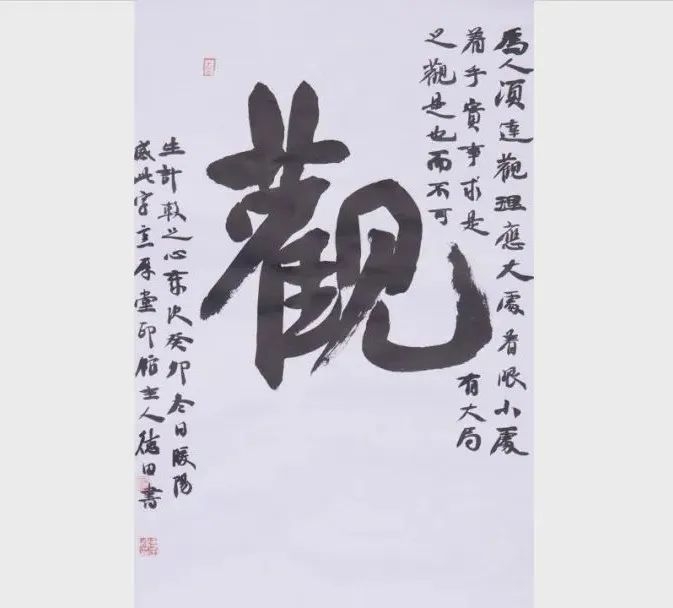 爲人須達觀理應大處着眼小處
着手實事求是有大局
之觀是也而不可
觀
生計較之心歲次癸卯冬日暖陽
此字厚堂印館主人德田書